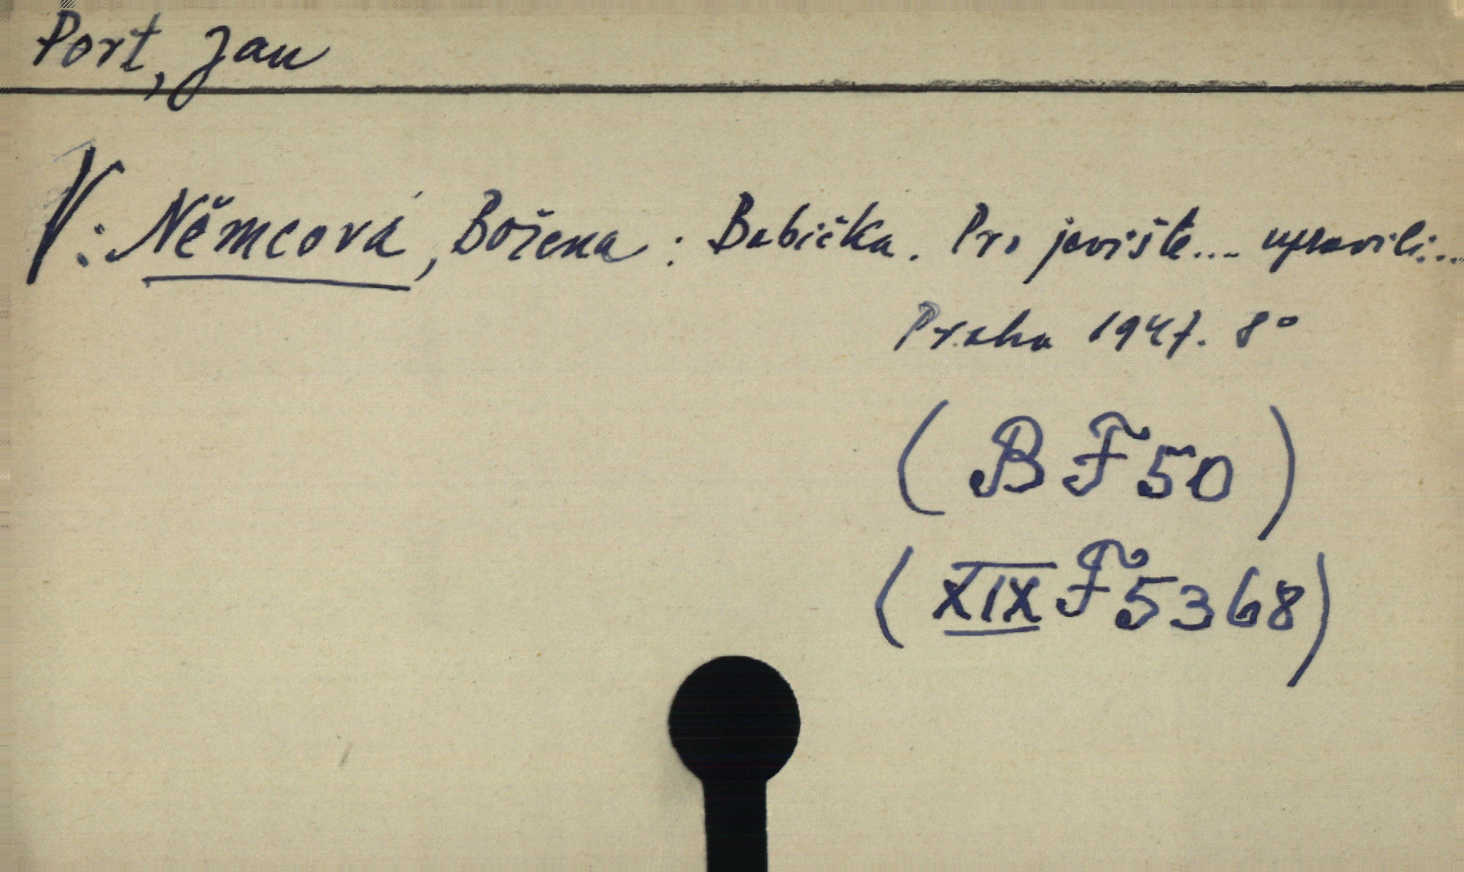 Port, Jan
V: Němcová, Božena: Babička. Pro jeviště... upravili...
Praha 1947. 8°
(BF50)
(XIXF5368)